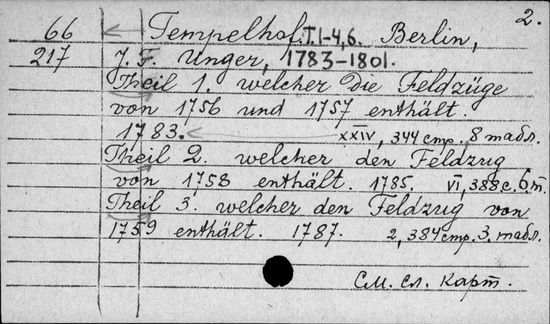 2.
66 Tempelhof. T.1-4,6. Berlin,
217 J. F. Unger, 1783-1801.
Theil 1. welcher die Feldzüge
von 1756 und 1757 enthält.
1783. XXIV, 344 стр., 8 табл.
Theil 2. welcher den Feldzug
von 1758 enthält. 1785. VI, 388 с. 6 т.
Theil 3. welcher den Feldzug von
1759 enthält. 1787. 2, 384 стр. 3. табл.
См. сл. карт.